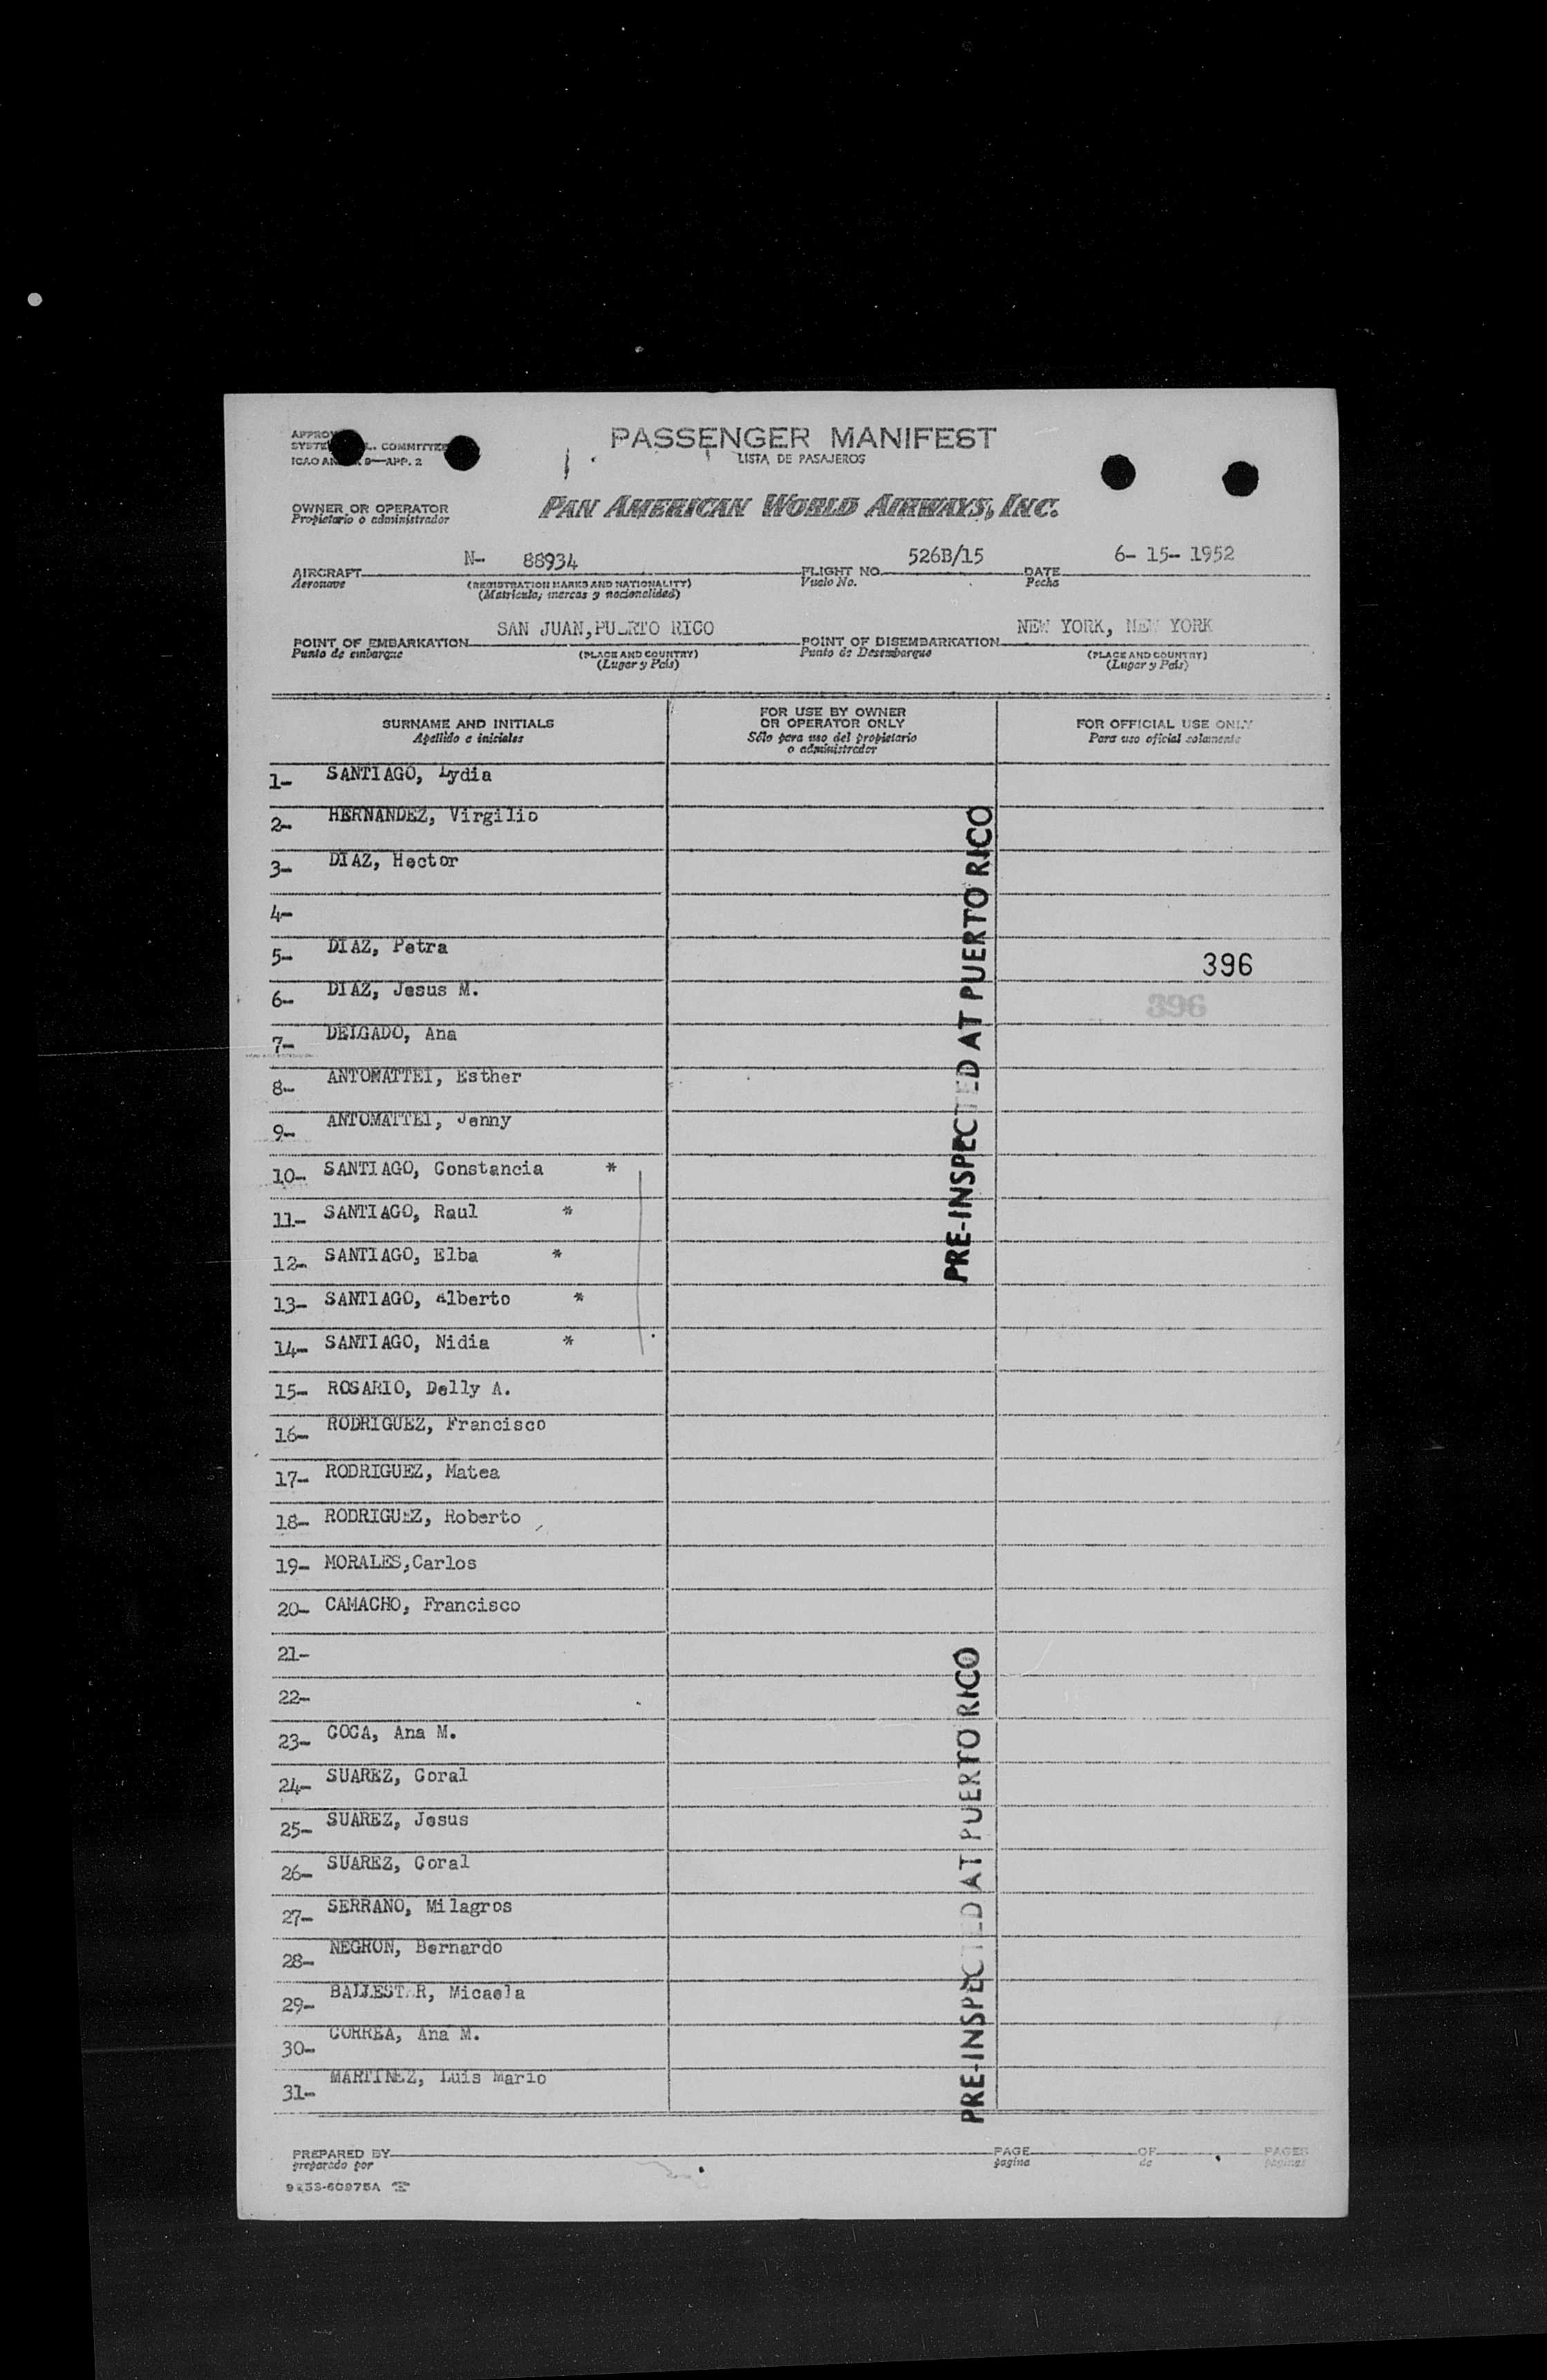 PASSENGER MANIFEST
LISTA DE PASAJEROS
COMMITTEE
ICAO 9—APP. 2
OWNER OR OPERATOR
Propietario o administrador
PAN AMERICAN WORLD AIRWAYS, INC.
AIRCRAFT N- 88934 FLIGHT NO. 526B/15 DATE 6- 15- 1952
Aeronave (REGISTRATION MARKS AND NATIONALITY) Vuelo No. Fecha
(Matricula, marcas y nacionalidad)
POINT OF EMBARKATION SAN JUAN,PUERTO RICO POINT OF DISEMBARKATION NEW YORK, NEW YORK
Punto de embarque (PLACE AND COUNTRY) Punto de Desembarque (PLACE AND COUNTRY)
(Lugar y País) (Lugar y País)
SURNAME AND INITIALS
Apellido e iniciales
FOR USE BY OWNER
OR OPERATOR ONLY
Sólo para uso del propietario
o administrador
FOR OFFICIAL USE ONLY
Para uso oficial solamente
1- SANTIAGO, Lydia
2- HERNANDEZ, Virgilio
3- DIAZ, Hector
4-
5- DIAZ, Petra
396
6- DIAZ, Jesus M.
396
7- DELGADO, Ana
8- ANTOMATTEI, Esther
9- ANTOMATTEI, Jenny
10- SANTIAGO, Constancia *
11- SANTIAGO, Raul *
12- SANTIAGO, Elba *
13- SANTIAGO, Alberto *
14- SANTIAGO, Nidia *
15- ROSARIO, Delly A.
16- RODRIGUEZ, Francisco
17- RODRIGUEZ, Matea
18- RODRIGUEZ, Roberto
19- MORALES,Carlos
20- CAMACHO, Francisco
21-
22-
23- COCA, Ana M.
24- SUAREZ, Coral
25- SUAREZ, Jesus
26- SUAREZ, Coral
27- SERRANO, Milagros
28- NEGRON, Bernardo
29- BALLESTER, Micaela
30- CORREA, Ana M.
31- MARTINEZ, Luis Mario
PRE-INSPECTED AT PUERTO RICO
PRE-INSPECTED AT PUERTO RICO
PREPARED BY PAGE OF PAGES
preparado por pagina de paginas